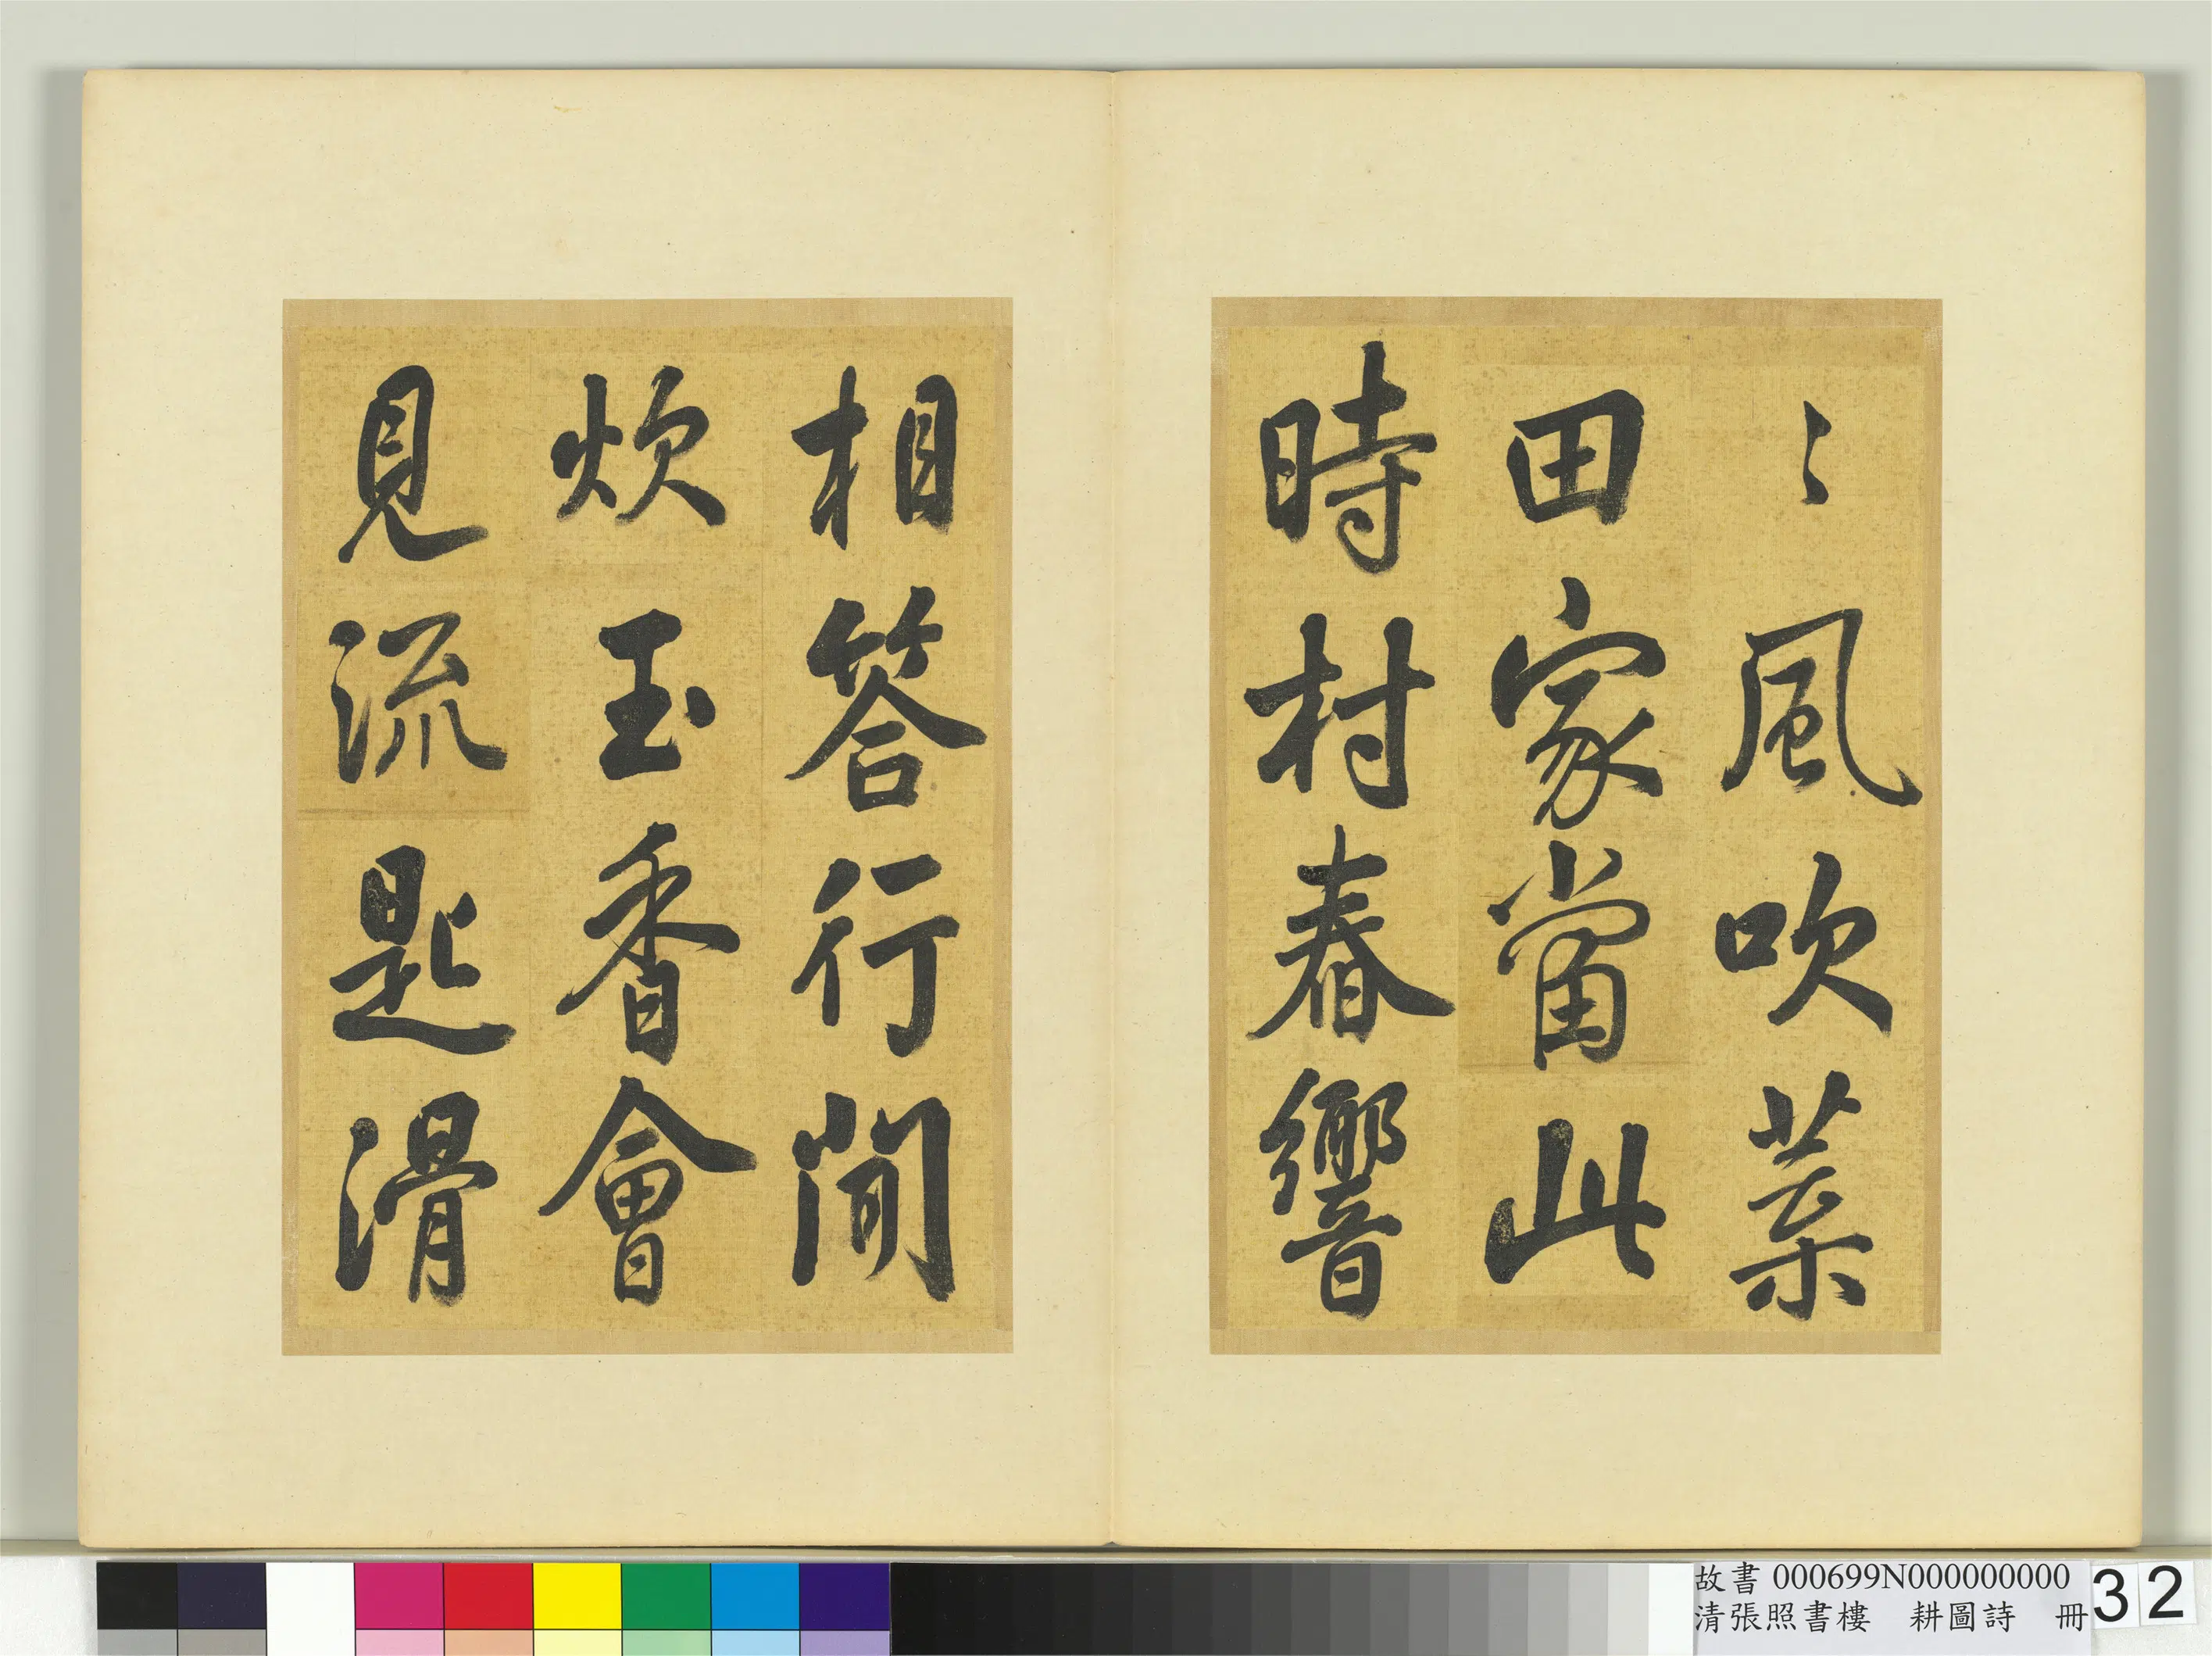 〻風吹葉
田家當此
時村舂響
相答行聞
炊玉香會
見流匙滑
故書 000699N000000000
清張照書樓 耕圖詩 冊
32